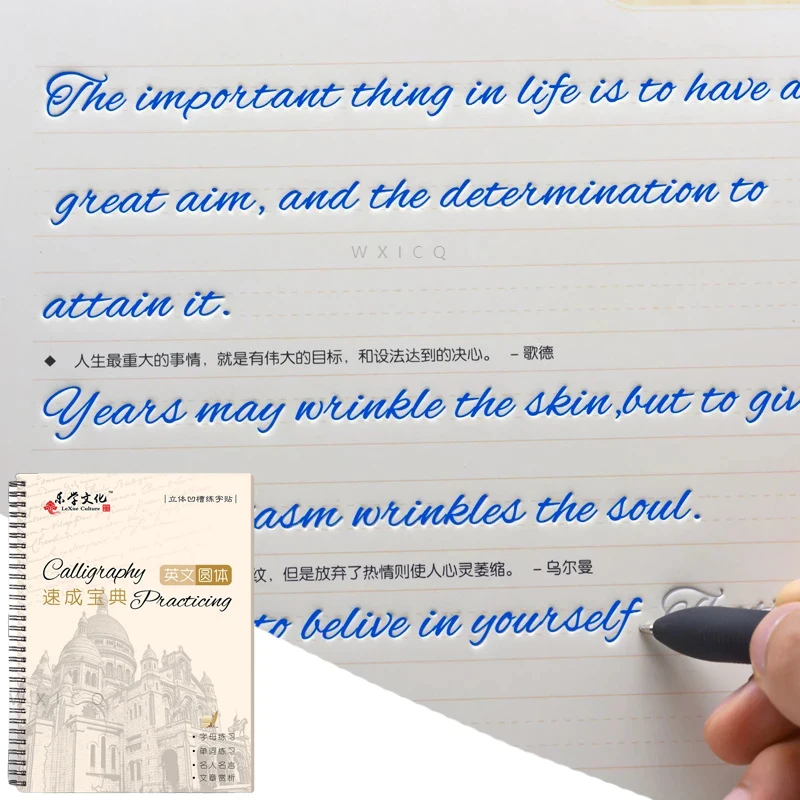 The important thing in life is to have a
great aim, and the determination to
WXICQ
attain it.
◆ 人生最重大的事情，就是有伟大的目标，和设法达到的决心。 – 歌德
Years may wrinkle the skin,but to giv
asm wrinkles the soul.
纹，但是放弃了热情则使人心灵萎缩。 – 乌尔曼
to belive in yourself
乐学文化™
LeXue Culture
|立体凹槽练字贴|
Calligraphy
英文圆体
速成宝典
Practicing
• 字母练习
• 单词练习
• 名人名言
• 文章赏析